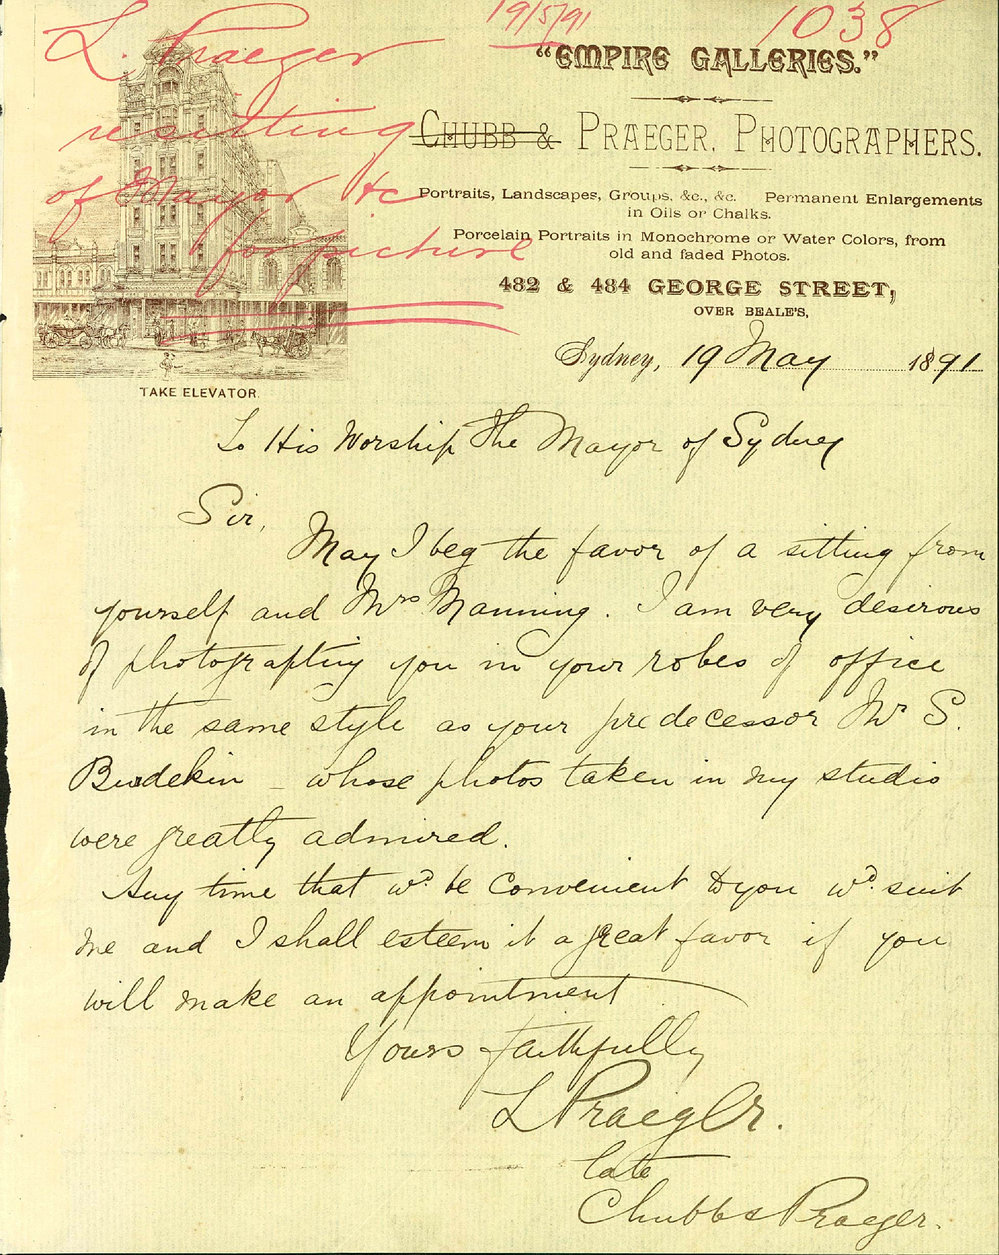 19/5/91
1038
L. Praeger
resitting
of Mayor &c
for picture
"EMPIRE GALLERIES."
CHUBB & PRAEGER, PHOTOGRAPHERS.
Portraits, Landscapes, Groups, &c., &c. Permanent Enlargements
in Oils or Chalks.
Porcelain Portraits in Monochrome or Water Colors, from
old and faded Photos.
482 & 484 GEORGE STREET,
OVER BEALE'S,
TAKE ELEVATOR.
Sydney, 19 May 1891
To His Worship The Mayor of Sydney
Sir,
May I beg the favor of a sitting from
yourself and Mrs Manning. I am very desirous
of photografting you in your robes of office
in the same style as your predecessor Mr S.
Burdekin – whose photos taken in my studio
were greatly admired.
Any time that wd. be convenient to you wd. suit
me and I shall esteem it a great favor if you
will make an appointment
Yours faithfully
L Praeger.
late
Chubb & Praeger.